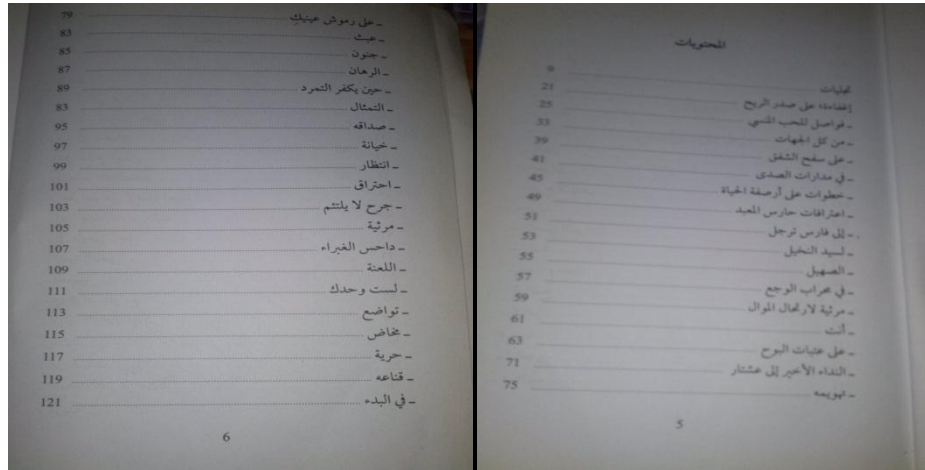 المحتويات
تجليات 9
إغفاءة على صدر الريح 21
ـ فواصل للحب المنسي 25
ـ من كل الجهات 33
ـ على سفح الشفق 39
ـ في مدارات الصدى 41
ـ خطوات على أرصفة الحياة 45
ـ اعترافات حارس المعبد 49
ـ إلى فارس ترجل 51
ـ لسيد النخيل 53
ـ الصهيل 55
ـ في محراب الوجع 57
ـ مرثية لارتحال الموال 59
ـ أنت 61
ـ على عتبات البوح 63
ـ النداء الأخير إلى عشتار 71
ـ تهويمه 75
5
ـ على رموش عينيك 79
ـ عبث 83
ـ جنون 85
ـ الرهان 87
ـ حين يكفر التمرد 89
ـ التمثال 83
ـ صداقه 95
ـ خيانة 97
ـ انتظار 99
ـ احتراق 101
ـ جرح لا يلتئم 103
ـ مرثية 105
ـ داحس الغبراء 107
ـ اللعنة 109
ـ لست وحدك 111
ـ تواضع 113
ـ مخاض 115
ـ حرية 117
ـ قناعه 119
ـ في البدء 121
6